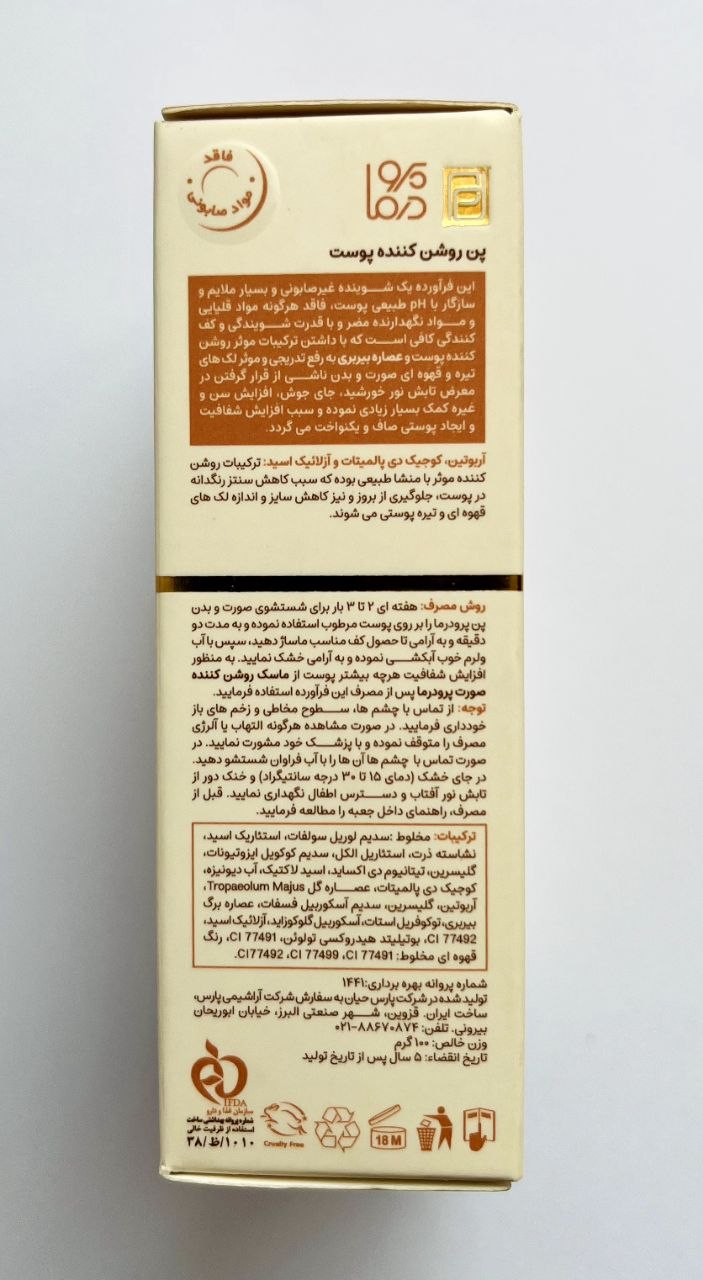 فاقد
مواد صابونی
پرو
درما
پن روشن کننده پوست
این فرآورده یک شـــوینده غیرصابونی و بسیار ملایم و
سازگار با pH طبیعی پوست، فاقد هرگونه مواد قلیایی
و مـــواد نگهدارنده مضر و با قدرت شـــویندگی و کف
کنندگی کافی اســـت که با داشتن ترکیبات موثر روشن
کننده پوست و عصاره بیربری به رفع تدریجی و موثر لک های
تیره و قهوه ای صورت و بدن ناشـــی از قرار گرفتن در
معرض تابش نور خورشید، جای جوش، افزایش سن و
غیره کمک بسیار زیادی نموده و سبب افزایش شفافیت
و ایجاد پوستی صاف و یکنواخت می گردد.
آربوتین، کوجیک دی پالمیتات و آزلائیک اسید: ترکیبات روشن
کننده موثر با منشا طبیعی بوده که سبب کاهش سنتز رنگدانه
در پوست، جلوگیری از بروز و نیز کاهش سایز و اندازه لک های
قهوه ای و تیره پوستی می شوند.
روش مصرف: هفته ای ۲ تا ۳ بار برای شستشوی صورت و بدن
پن پرودرما را بر روی پوست مرطوب استفاده نموده و به مدت دو
دقیقه و به آرامی تا حصول کف مناسب ماساژ دهید، سپس با آب
ولرم خوب آبکشـــی نموده و به آرامی خشک نمایید. به منظور
افزایش شفافیت هرچه بیشتر پوست از ماسک روشن کننده
صورت پرودرما پس از مصرف این فرآورده استفاده فرمایید.
توجه: از تماس با چشم ها، ســـطوح مخاطی و زخم های باز
خودداری فرمایید. در صورت مشاهده هرگونه التهاب یا آلرژی
مصرف را متوقف نموده و با پزشـــک خود مشورت نمایید. در
صورت تماس با چشم ها آن ها را با آب فراوان شستشو دهید.
در جای خشک (دمای ۱۵ تا ۳۰ درجه سانتیگراد) و خنک دور از
تابش نور آفتاب و دســـترس اطفال نگهداری نمایید. قبل از
مصرف، راهنمای داخل جعبه را مطالعه فرمایید.
ترکیبات: مخلوط :سدیم لوریل سولفات، استئاریک اسید،
نشاسته ذرت، استئاریل الکل، سدیم کوکویل ایزوتیونات،
گلیسرین، تیتانیوم دی اکساید، اسید لاکتیک، آب دیونیزه،
کوجیک دی پالمیتات، عصـــاره گل Tropaeolum Majus،
آربوتین، گلیسرین، سدیم آسکوربیل فسفات، عصاره برگ
بیربری،توکوفریل استات،آسکوربیل گلوکوزاید،آزلائیک اسید،
CI 77492، بوتیلیتد هیدروکسی تولوئن، CI 77491، رنگ
قهوه ای مخلوط: CI 77491، CI 77499، CI77492.
شماره پروانه بهره برداری:۱۴۴۱
تولید شده در شرکت پارس حیان به سفارش شرکت آراشیمی پارس،
ساخت ایران. قزوین، شـــهر صنعتی البرز، خیابان ابوریحان
بیرونی. تلفن: ۸۸۶۷۰۸۷۴-۰۲۱
وزن خالص: ۱۰۰ گرم
تاریخ انقضاء: ۵ سال پس از تاریخ تولید
IFDA
سازمان غذا و دارو
شماره پروانه بهداشتی ساخت
استفاده از ظرفیت خالی
۳۸/ظ/۱۰۱۰
Cruelty Free
18 M